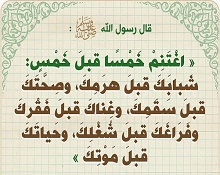 قال رسول الله ﷺ :
« اغْتَنِمْ خَمْسًا قبلَ خَمْسٍ:
شَبابَكَ قبلَ هِرَمِكَ، وصِحَّتَكَ
قبلَ سَقَمِكَ، وغناكَ قبلَ فَقْرِكَ
وفَرَاغَكَ قبلَ شُغْلِكَ، وحياتَكَ
قبلَ مَوْتِكَ »